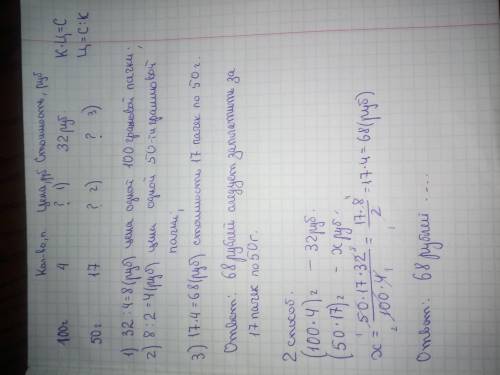 Кол-во, п. Цена, рб Стоимость, руб
100г 4 ? 1) 32 руб. К·Ц=С
50г 17 ? 2) ? 3) Ц=С:К
1) 32 : 4=8(руб) цена одной 100 грамовой пачки.
2) 8 : 2 =4(руб) цена одной 50-ти граммовой
пачки,
3) 17·4=68(руб) стоимость 17 пачек по 50 г.
Ответ: 68 рублей следует заплатить за
17 пачек по 50г.
2 способ.
(100·4)г — 32руб.
(50·17)г - х руб.
х = 50·17·32 / 100·4 = 17·8 / 2 = 17·4 = 68(руб)
Ответ: 68 рублей ....